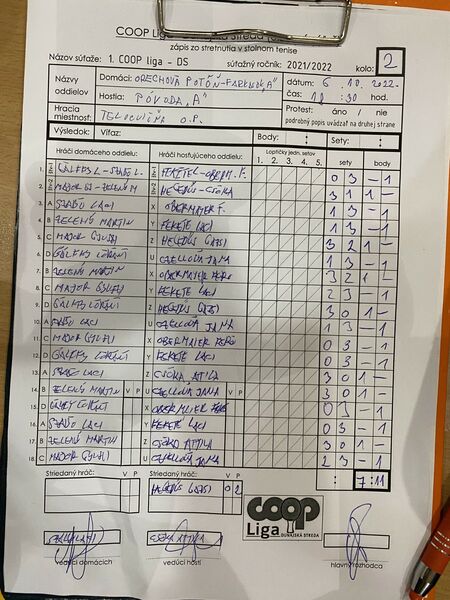 COOP Li
zápis zo stretnutia v stolnom tenise
Názov súťaže: 1. COOP liga - DS súťažný ročník: 2021/2022 kolo: 2
Názvy oddielov Domáci: ORECHOVÁ POTÔŇ - "A" dátum: 6. 10. 2022.
Hostia: PÓVODA "A" čas: 11 : 30 hod.
Hracia miestnosť: TELOCVIČŇA O.P. Protest: áno / nie
podrobný popis uvádzať na druhej strane
Výsledok: Víťaz: Body: : Sety: :
Hráči domáceho oddielu: Hráči hosťujúceho oddielu: Loptičky jedn. setov 1. 2. 3. 4. 5. sety body
1. 0 3 - 1
2. HEGEDŰS - CSÓKA 3 1 1 -
3. A SZABÓ LACI X OBERMAIER F. 1 3 - 1
4. B ZELENÝ MARTIN Y FEKETE LACI 1 3 - 1
5. C MAJOR GYUSZI Z HEGEDŰS GABSI 3 2 1 -
6. D U CZELLOVÁ JANA 1 3 - 1
7. B ZELENÝ MARTIN X OBERMAIER FERO 3 2 1 -
8. C MAJOR GYUSZI Y FEKETE LACI 2 3 - 1
9. D Z HEGEDŰS GABSI 0 3 - 1
10. A SZABÓ LACI U CZELLOVÁ JANA 1 3 - 1
11. C MAJOR GYUSZI X OBERMAIER FERO 0 3 - 1
12. D Y FEKETE LACI 0 3 - 1
13. A SZABÓ LACI Z CSÓKA ATTILA 3 0 1 -
14. B ZELENÝ MARTIN V P U CZELLOVÁ JANA V P 3 0 1 -
15. D X OBERMAIER FERO 0 3 - 1
16. A SZABÓ LACI Y FEKETE LACI 0 3 - 1
17. B ZELENÝ MARTIN Z CSÓKA ATTILA 3 0 1 -
18. C MAJOR GYUSZI U CZELLOVÁ JANA 2 3 - 1
: 7:11
Striedaný hráč: V P Striedaný hráč: V P
HEGEDŰS GABSI 0 2
coop
Liga
DUNAJSKÁ STREDA
vedúci domácich vedúci hostí hlavný rozhodca